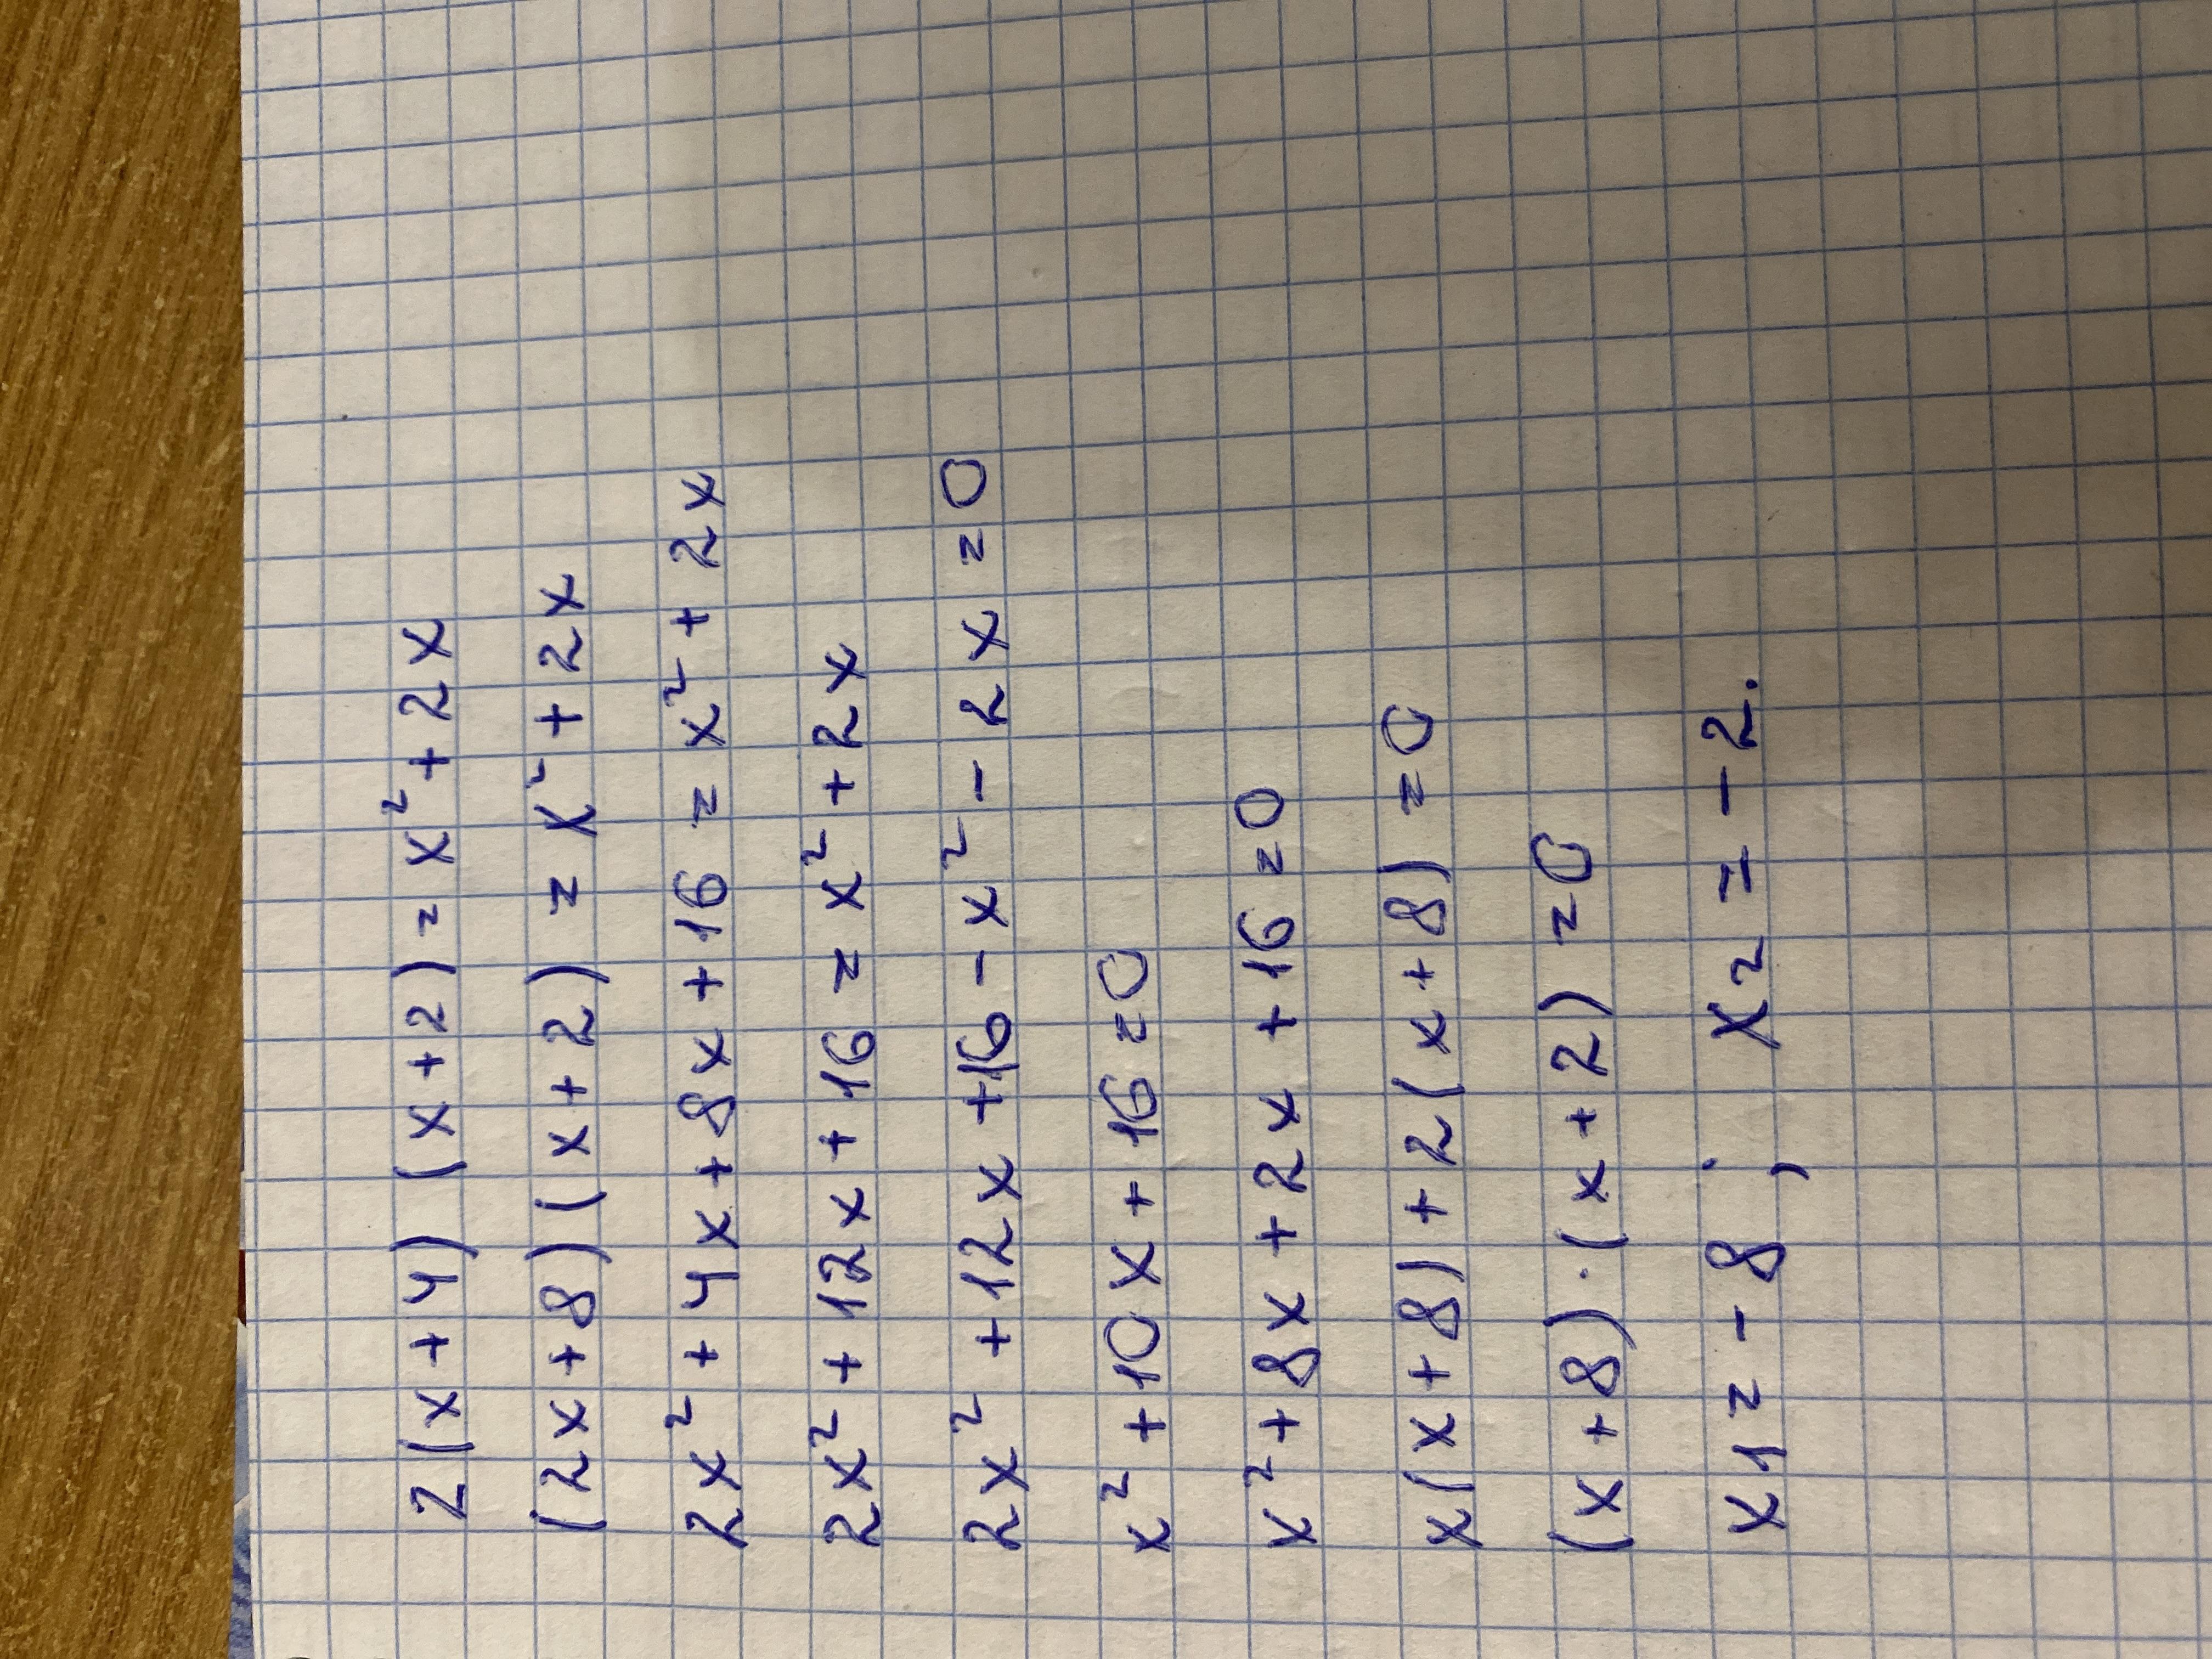 2(x+4) (x+2)=x²+2x
(2x+8)(x+2)=x²+2x
2x²+4x+8x+16=x²+2x
2x²+12x+16=x²+2x
2x²+12x+16-x²-2x=0
x²+10x+16=0
x²+8x+2x+16=0
x(x+8)+2(x+8)=0
(x+8)·(x+2)=0
x1=-8; x2=-2.